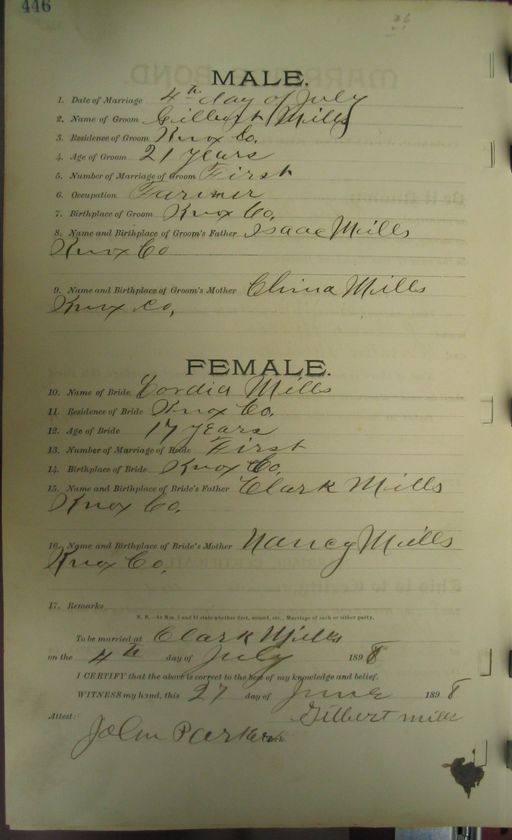 446
MALE.
1. Date of Marriage 4th day of July
2. Name of Groom Gilbert Mills
3. Residence of Groom Knox Co.
4. Age of Groom 21 years
5. Number of Marriage of Groom First
6. Occupation Farmer
7. Birthplace of Groom Knox Co.
8. Name and Birthplace of Groom's Father Isaac Mills
Knox Co
9. Name and Birthplace of Groom's Mother Mills
Knox Co.
FEMALE.
10. Name of Bride Cordia Mills
11. Residence of Bride Knox Co.
12. Age of Bride 17 years
13. Number of Marriage of Bride First
14. Birthplace of Bride Knox Co.
15. Name and Birthplace of Bride's Father Clark Mills
Knox Co.
16. Name and Birthplace of Bride's Mother Nancy Mills
Knox Co.
17. Remarks
N. B.—At Nos. 5 and 13 state whether first, second, etc., Marriage of each or either party.
To be married at Clark Mills
on the 4th day of July 1898
I CERTIFY that the above is correct to the best of my knowledge and belief.
WITNESS my hand, this 27 day of June 1898
Gilbert mills
Attest:
John Parker